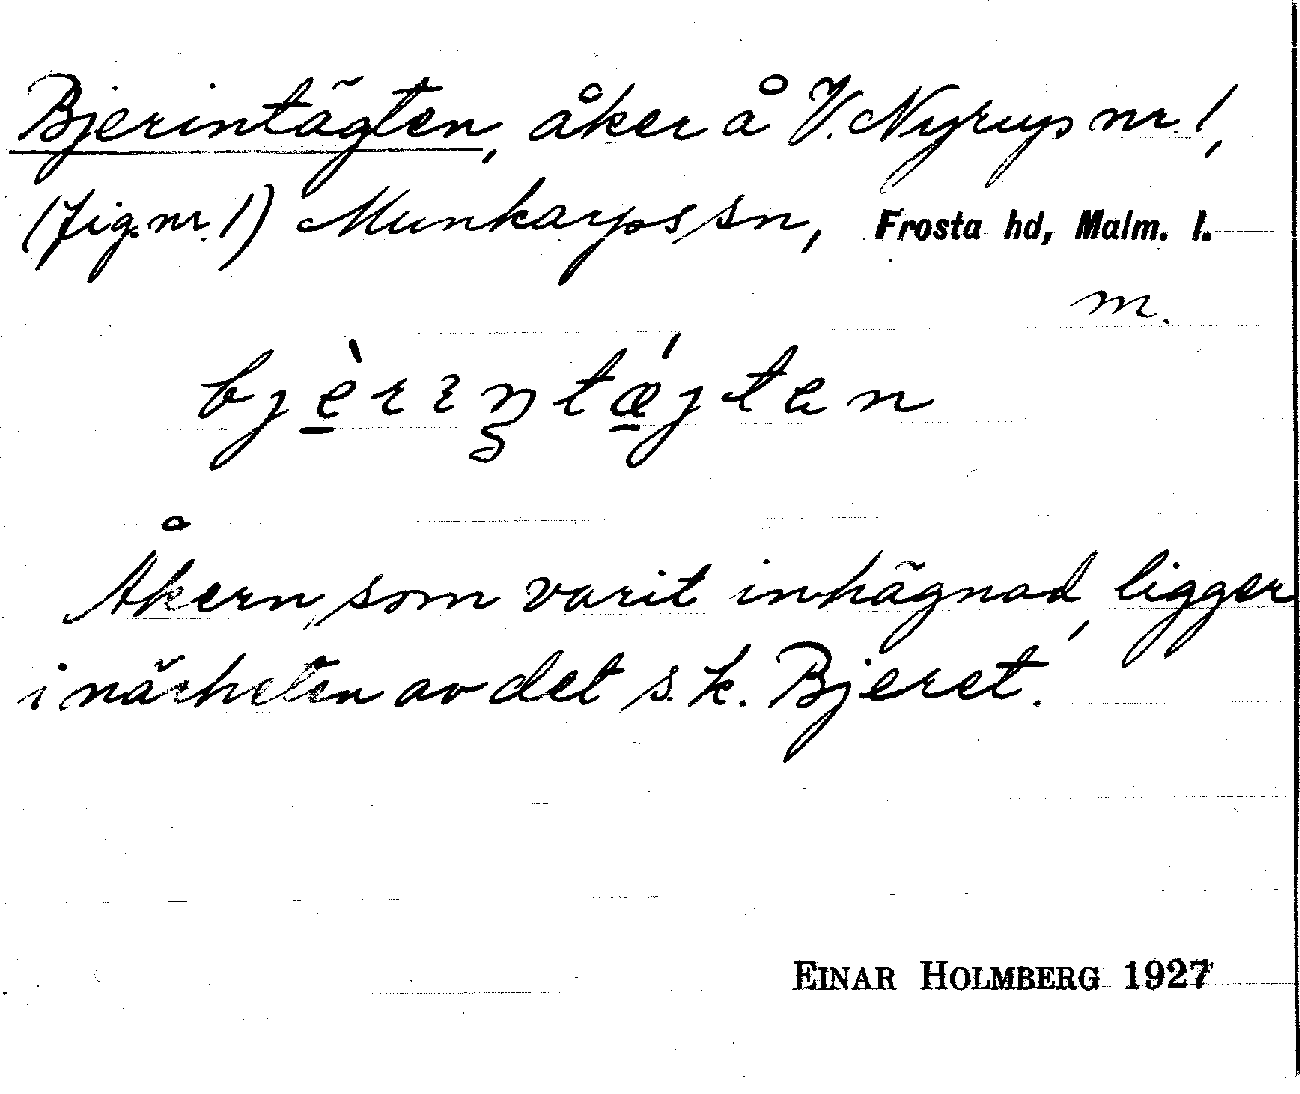 Bjerintägten, åker å V. Nyrup nr 1,
(fig. nr. 1) Munkarps sn, Frosta hd, Malm. l.
m.
bjèrintǽjten
Åkern, som varit inhägnad, ligger
i närheten av det s.k. Bjeret.
EINAR HOLMBERG 1927